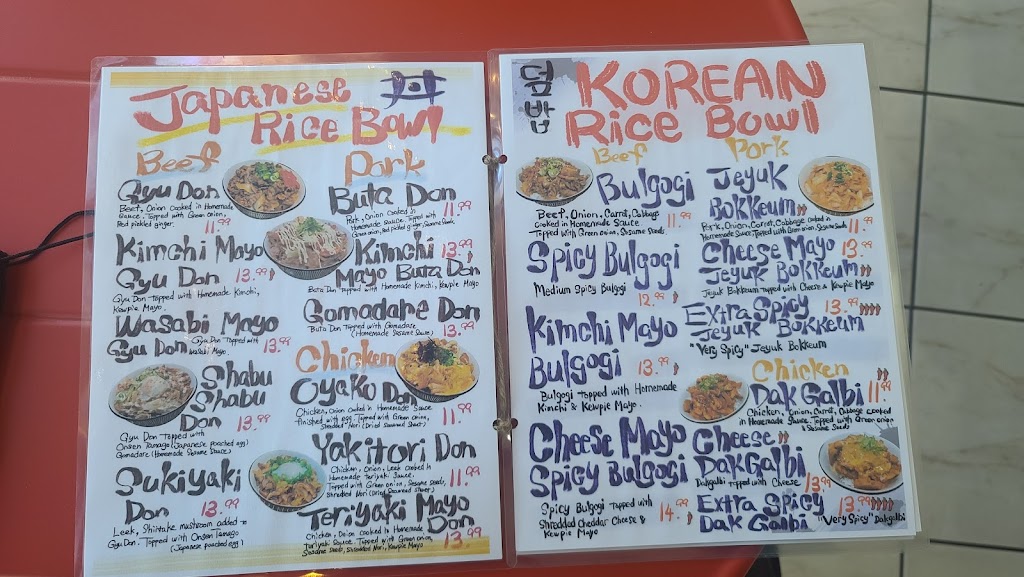 Japanese 丼
Rice Bowl
Beef
Gyu Don
Beef, Onion Cooked in Homemade
Sauce, Topped with Green onion,
Red pickled ginger.
11.99
Kimchi Mayo
Gyu Don 13.99
Gyu Don Topped with Homemade Kimchi,
Kewpie Mayo.
Wasabi Mayo
Gyu Don
Gyu Don Topped with
Wasabi Mayo.
13.99
Shabu
Shabu
Don 13.99
Gyu Don Topped with
Onsen Tamago (Japanese poached egg)
Gomadare (Homemade Sesame Sauce)
Sukiyaki
Don 13.99
Leek, Shiitake mushroom added to
Gyu Don. Topped with Onsen Tamago
(Japanese poached egg)
Pork
Buta Don
Pork, Onion cooked in
Homemade sauce. Topped with
Green onion, Red pickled ginger, Sesame Seeds
11.99
Kimchi 13.99
Mayo Buta Don
Buta Don Topped with Homemade kimchi, Kewpie Mayo
Gomadare Don
Buta Don Topped with Gomadare
(Homemade Sesame Sauce)
13.99
Chicken
Oyako Don
Chicken, Onion cooked in Homemade Sauce
finished with egg. Topped with Green onion,
Shredded Nori (Dried Seaweed Sheet)
11.99
Yakitori Don
Chicken, Onion, Leek cooked in
Homemade Teriyaki Sauce.
Topped with Green onion, Sesame seeds,
Shredded Nori (Dried Seaweed Sheet)
11.99
Teriyaki Mayo
Don
Chicken, Onion cooked in Homemade
Teriyaki Sauce. Topped with Green onion,
Sesame Seeds, Shredded Nori, Kewpie Mayo
13.99
덮밥
KOREAN
Rice Bowl
Beef
Bulgogi
Beef, Onion, Carrot, Cabbage
Cooked in Homemade Sauce
Topped with Green onion, Sesame Seeds
11.99
Spicy Bulgogi
Medium Spicy Bulgogi
12.99
Kimchi Mayo
Bulgogi 13.99
Bulgogi topped with Homemade
Kimchi & Kewpie Mayo.
Cheese Mayo
Spicy Bulgogi
Spicy Bulgogi Topped with
Shredded Cheddar Cheese &
Kewpie Mayo
14.99
Pork
Jeyuk
Bokkeum
Pork, Onion, Carrot, Cabbage cooked in
Homemade Sauce. Topped with Green onion, Sesame Seeds
11.99
Cheese Mayo 13.99
Jeyuk Bokkeum
Jeyuk Bokkeum topped with Cheese & Kewpie Mayo
Extra Spicy 13.99
Jeyuk Bokkeum
"Very Spicy" Jeyuk Bokkeum
Chicken
Dak Galbi 11.99
Chicken, Onion, Carrot, Cabbage cooked
in Homemade Sauce. Topped with Green onion
& Sesame Seeds
Cheese
Dak Galbi
Dakgalbi topped with Cheese
13.99
Extra Spicy 13.99
Dak Galbi "Very Spicy" Dakgalbi